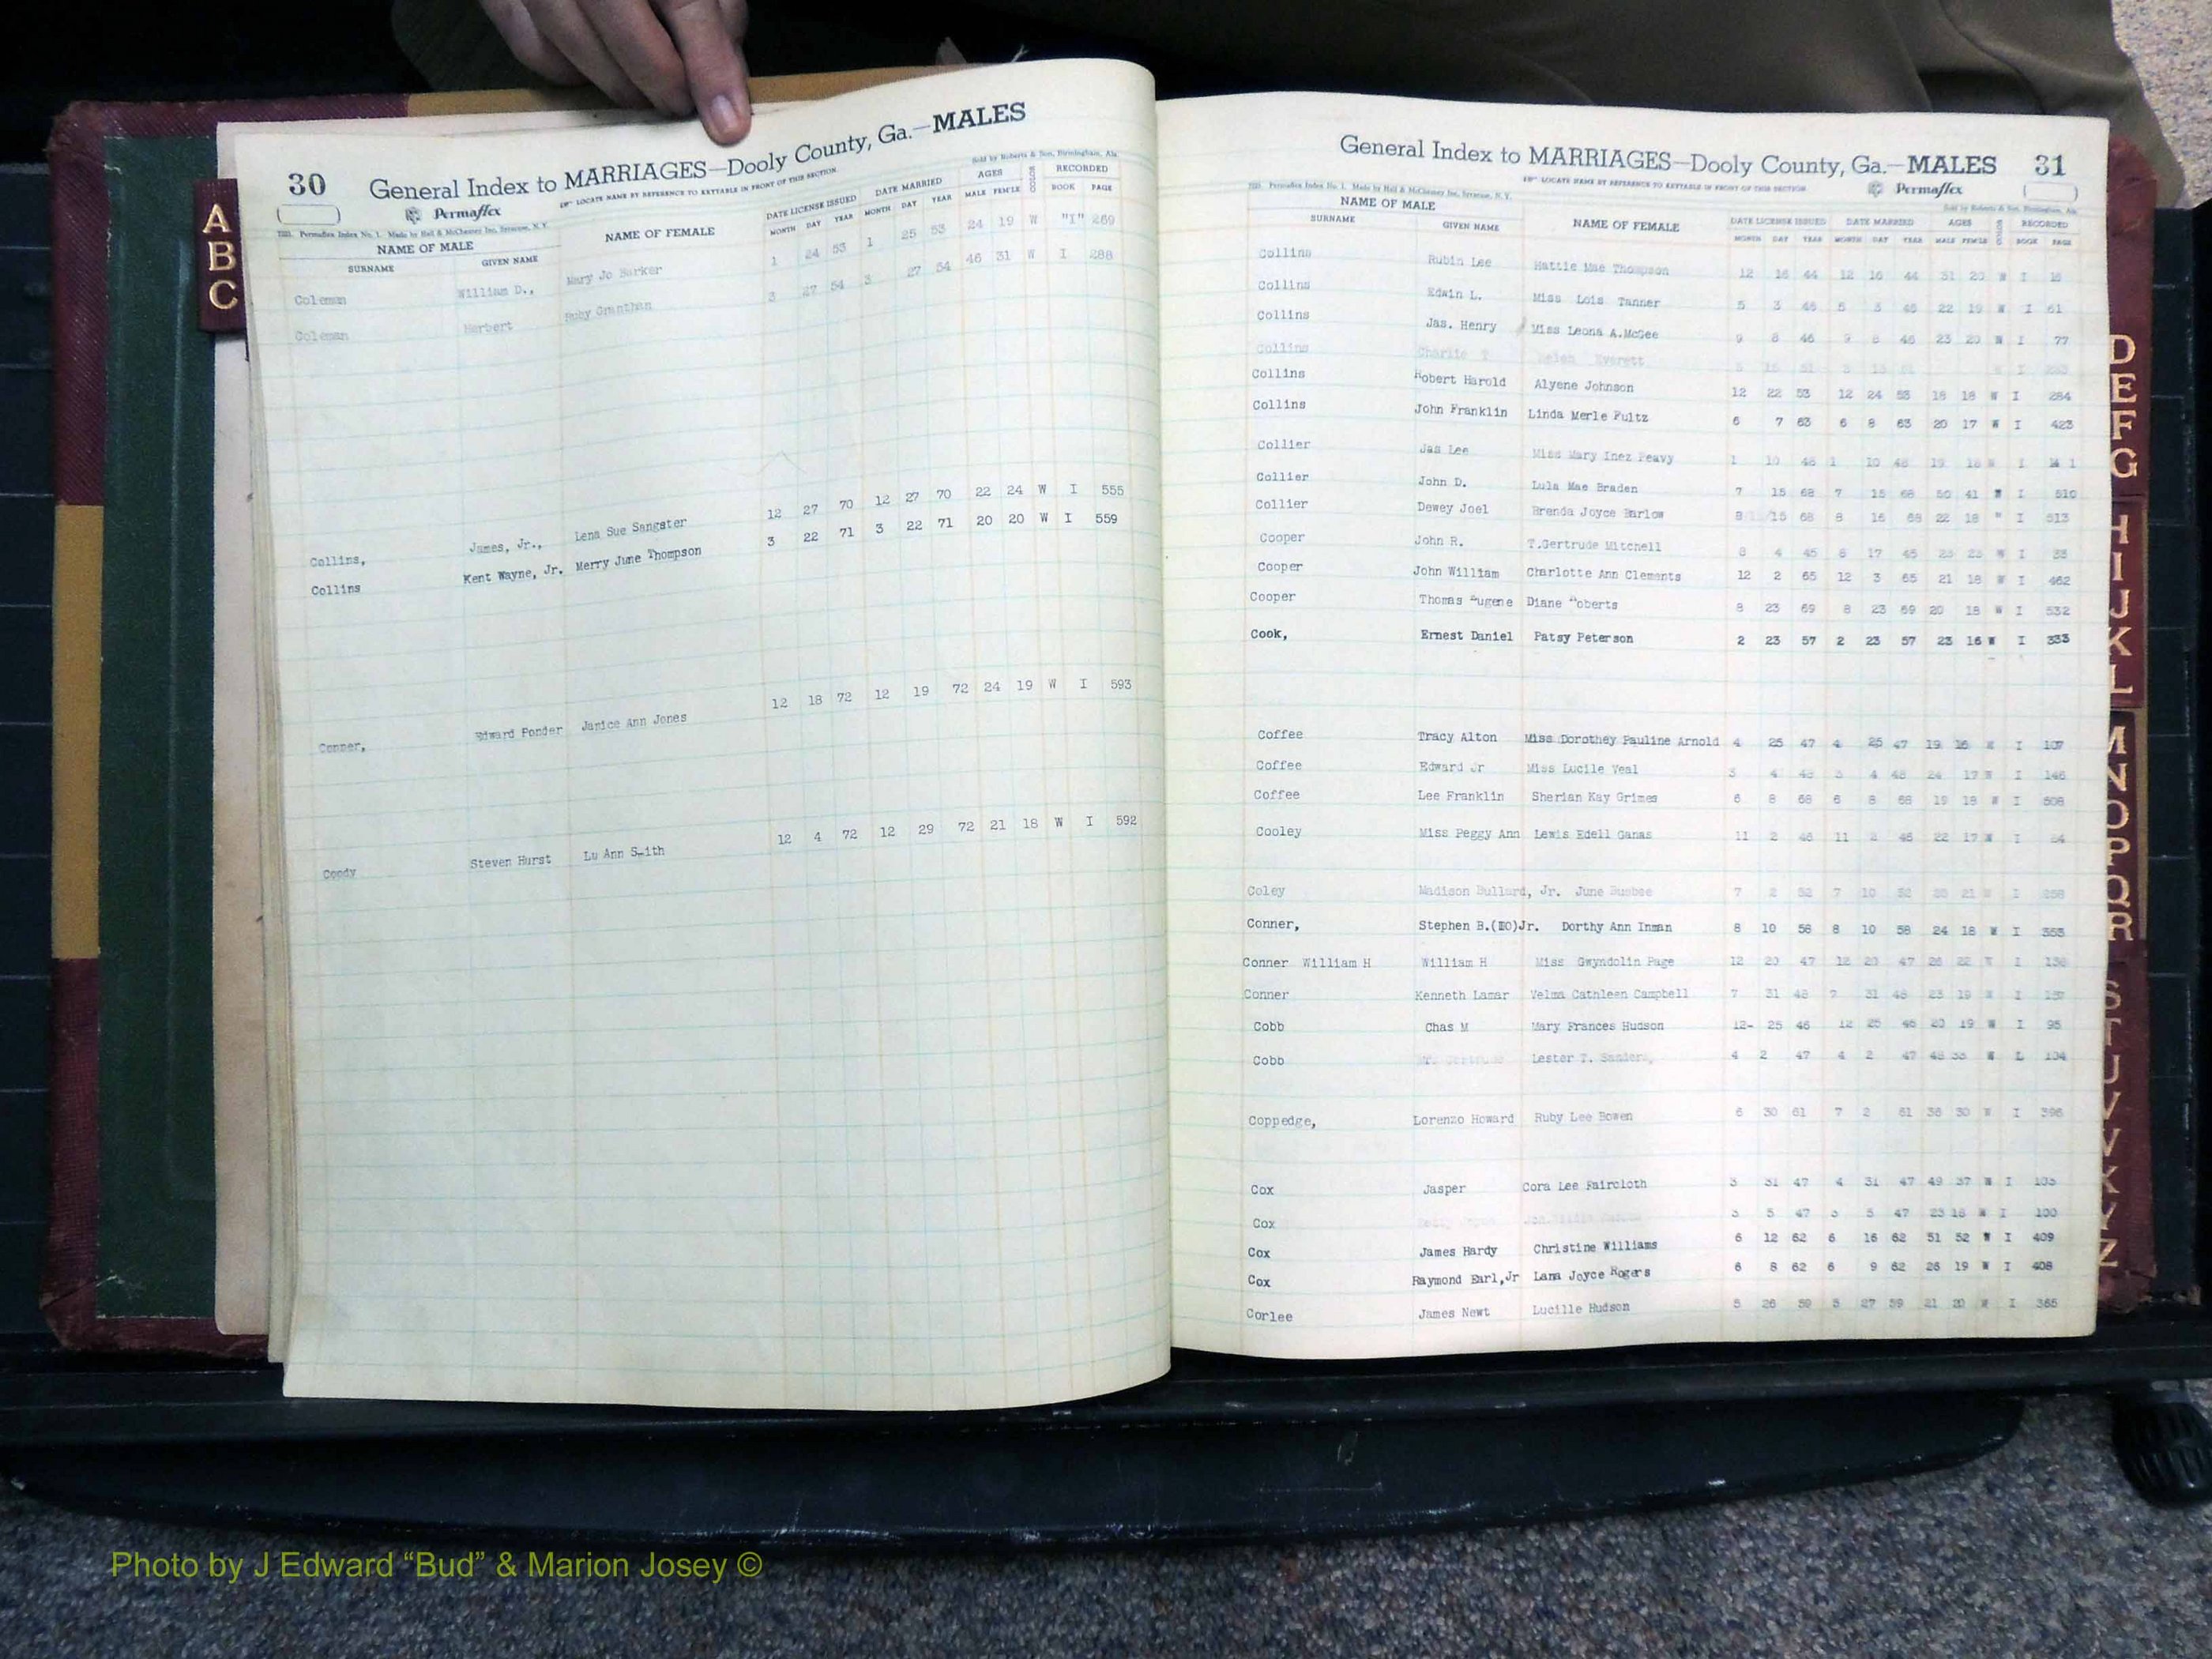 30
General Index to MARRIAGES—Dooly County, Ga.—MALES
LOCATE NAME BY REFERENCE TO KEYTABLE IN FRONT OF THIS SECTION
Permaflex
Sold by Roberts & Son, Birmingham, Ala
Permaflex Index No. 1. Made by Hall & McChesney Inc. Syracuse, N. Y.
NAME OF MALE NAME OF FEMALE DATE LICENSE ISSUED DATE MARRIED AGES RECORDED
SURNAME GIVEN NAME MONTH DAY YEAR MONTH DAY YEAR MALE FEM'LE COLOR BOOK PAGE
Coleman William D., Mary Jo Barker 1 24 53 1 25 53 24 19 W "I" 269
Coleman Herbert Ruby Granthan 3 27 54 3 27 54 46 31 W I 288
Collins, James, Jr., Lena Sue Sangster 12 27 70 12 27 70 22 24 W I 555
Collins Kent Wayne, Jr. Merry June Thompson 3 22 71 3 22 71 20 20 W I 559
Conner, Edward Ponder Janice Ann Jones 12 18 72 12 19 72 24 19 W I 593
Coody Steven Hurst Lu Ann Smith 12 4 72 12 29 72 21 18 W I 592
A
B
C
General Index to MARRIAGES—Dooly County, Ga.—MALES 31
LOCATE NAME BY REFERENCE TO KEYTABLE IN FRONT OF THIS SECTION
Permaflex
Permaflex Index No. 1. Made by Hall & McChesney Inc. Syracuse, N. Y.
Sold by Roberts & Son, Birmingham, Ala
NAME OF MALE NAME OF FEMALE DATE LICENSE ISSUED DATE MARRIED AGES RECORDED
SURNAME GIVEN NAME MONTH DAY YEAR MONTH DAY YEAR MALE FEM'LE COLOR BOOK PAGE
Collins Rubin Lee Hattie Mae Thompson 12 16 44 12 16 44 31 20 W I 16
Collins Edwin L. Miss Lois Tanner 5 3 46 5 3 46 22 19 W I 61
Collins Jas. Henry Miss Leona A.McGee 9 8 46 9 8 46 23 20 W I 77
Collins Charlie Helen Everett
Collins Robert Harold Alyene Johnson 12 22 53 12 24 53 18 18 W I 284
Collins John Franklin Linda Merle Fultz 6 7 63 6 8 63 20 17 W I 423
Collier Jas Lee Miss Mary Inez Peavy 1 10 46 1 10 46 19 18 W I
Collier John D. Lula Mae Braden 7 15 68 7 15 68 50 41 W I 510
Collier Dewey Joel Brenda Joyce Barlow 8 15 68 8 16 68 22 18 " I 513
Cooper John R. T.Gertrude Mitchell 8 4 45 8 17 45 W I
Cooper John William Charlotte Ann Clements 12 2 65 12 3 65 21 18 W I 462
Cooper Thomas Eugene Diane Roberts 8 23 69 8 23 69 20 18 W I 532
Cook, Ernest Daniel Patsy Peterson 2 23 57 2 23 57 23 16 W I 333
Coffee Tracy Alton Miss Dorothey Pauline Arnold 4 25 47 4 25 47 19 16 W I 107
Coffee Edward Jr Miss Lucile Veal 3 4 48 3 4 48 24 17 W I 146
Coffee Lee Franklin Sherian Kay Grimes 6 8 68 6 8 68 19 18 W I 508
Cooley Miss Peggy Ann Lewis Edell Ganas 11 2 46 11 2 46 22 17 W I
Coley Madison Bullard, Jr. June Busbee 7 2 52 7 10 52 21 W I
Conner, Stephen B.(BO)Jr. Dorthy Ann Inman 8 10 58 8 10 58 24 18 W I 353
Conner William H William H Miss Gwyndolin Page 12 20 47 12 20 47 26 22 W I
Conner Kenneth Lamar Velma Cathleen Campbell 7 31 48 7 31 48 23 19 W I 157
Cobb Chas M Mary Frances Hudson 12- 25 46 12 25 46 20 19 W I 95
Cobb Lester T. Sanders 4 2 47 4 2 47 W I 104
Coppedge, Lorenzo Howard Ruby Lee Bowen 6 30 61 7 2 61 36 30 W I 396
Cox Jasper Cora Lee Faircloth 3 31 47 4 31 47 49 37 W I 103
Cox 3 5 47 3 5 47 23 18 W I 100
Cox James Hardy Christine Williams 6 12 62 6 16 62 51 52 W I 409
Cox Raymond Earl,Jr Lana Joyce Rogers 6 8 62 6 9 62 26 19 W I 408
Corlee James Newt Lucille Hudson 5 26 59 5 27 59 21 20 W I 365
D
E
F
G
H
I
J
K
L
M
N
O
P
Q
R
S
T
U
V
W
X
Y
Z
Photo by J Edward “Bud” & Marion Josey ©